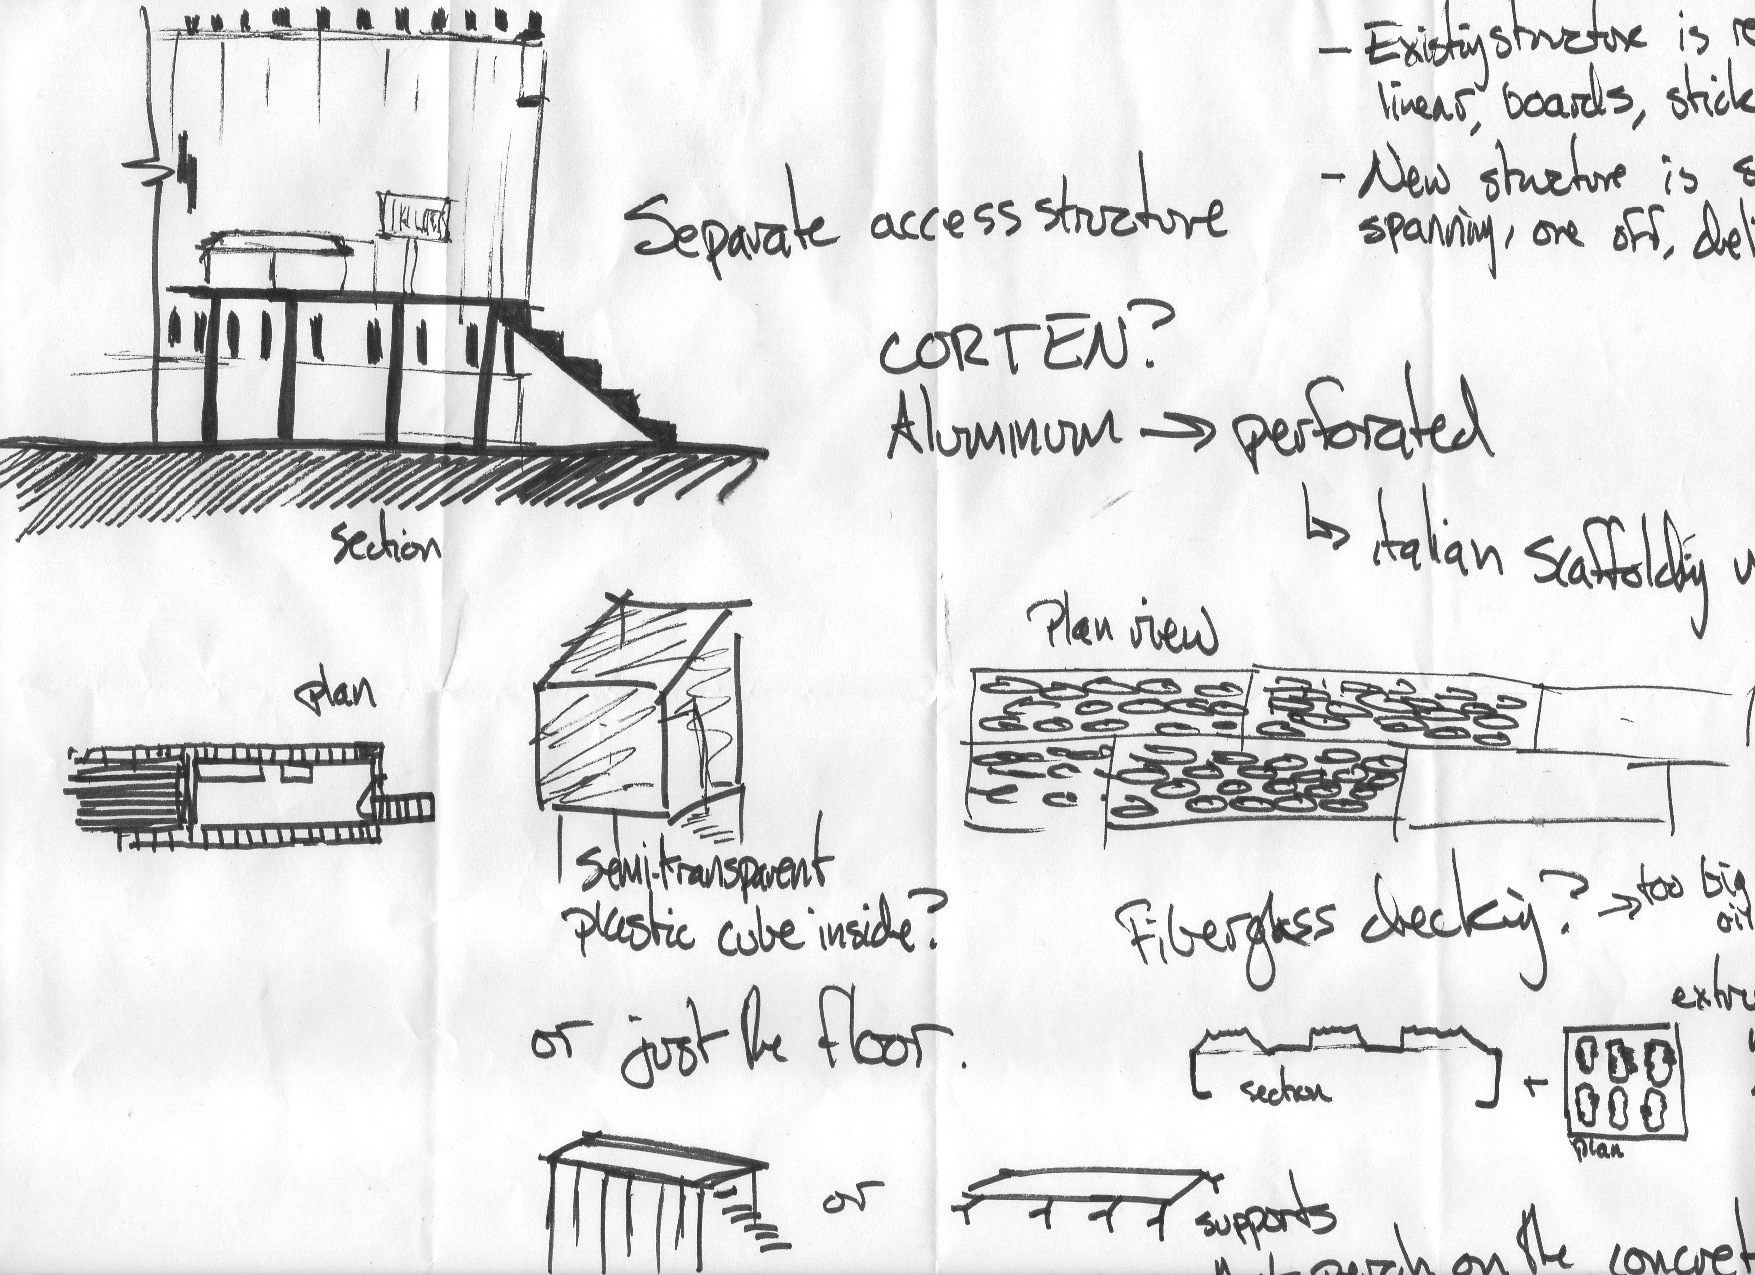 - Existing structure is re
linear, boards, stick
- New structure is s
spanning, one off,
Separate access structure
CORTEN?
Aluminum → perforated
↳ italian scaffolding
section
plan
Plan view
semi-transparent
plastic cube inside?
or just the floor.
Fiberglass decking? → too big
oil
extru
section
+
plan
or
supports
perch on the concret